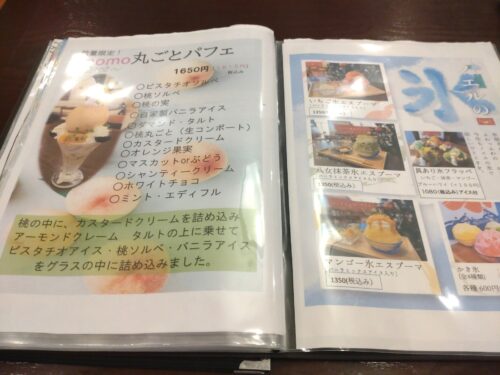 数量限定!
momo丸ごとパフェ
1650円
税込み
〇ピスタチオソルベ
〇桃ソルベ
〇桃の実
〇自家製バニラアイス
〇ダマンド・タルト
〇桃丸ごと(生コンポート)
〇カスタードクリーム
〇オレンジ果実
〇マスカットorぶどう
〇シャンティークリーム
〇ホワイトチョコ
〇ミント・エディフル
桃の中に、カスタードクリームを詰め込み
アーモンドクレーム タルトの上に乗せて
ピスタチオアイス・桃ソルベ・バニラアイス
をグラスの中に詰め込みました。
エルの
氷
いちご氷エスプーマ
1350(税込み)
八女抹茶氷エスプーマ
1350(税込み)
マンゴー氷エスプーマ
1350(税込み)
訳あり氷フラッペ
かき氷
(全4種類)
各種600円